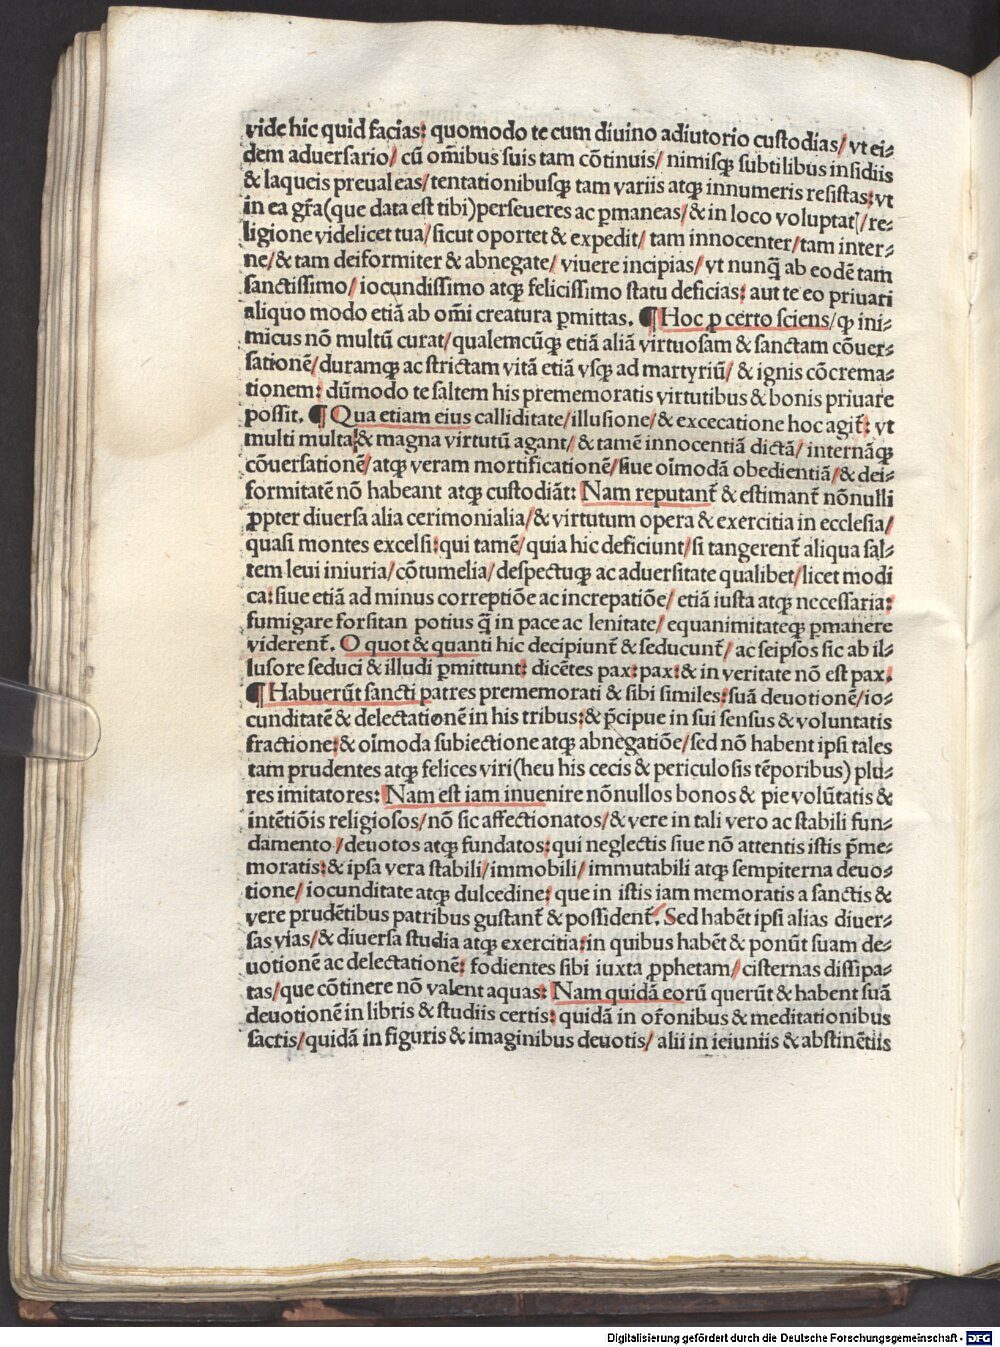 vide hic quid facias: quomodo te cum diuino adiutorio custodias/ vt ei⸗
dem aduersario/ cū om̄ibus suis tam cōtinuis/ nimisqꝫ subtilibus insidiis
& laqueis preualeas/tentationibusqꝫ tam variis atqꝫ innumeris resistas:vt
in ea gr̄a(que data est tibi)perseueres ac ꝑmaneas/& in loco voluptatꝭ/re⸗
ligione videlicet tua/sicut oportet & expedit/ tam innocenter/tam inter⸗
ne/& tam deiformiter & abnegate/ viuere incipias/ vt nunq̄ ab eodē tam
sanctissimo/iocundissimo atqꝫ felicissimo statu deficias: aut te eo priuari
aliquo modo etiā ab om̄i creatura ꝑmittas. ¶ Hoc ꝓ certo sciens/ꝙ ini⸗
micus nō multū curat/qualemcūqꝫ etiā aliā virtuosam & sanctam cōuer⸗
sationē/duramqꝫ ac strictam vitā etiā vsqꝫ ad martyriū/ & ignis cōcrema⸗
tionem: dūmodo te saltem his prememoratis virtutibus & bonis priuare
possit. ¶ Qua etiam eius calliditate/illusione/& excecatione hoc agit̄: vt
multi multa & magna virtutū agant/& tamē innocentiā dictā/ internāqꝫ
cōuersationē/atqꝫ veram mortificationē/siue oīmodā obedientiā/& dei⸗
formitatē nō habeant atqꝫ custodiāt: Nam reputant̄ & estimant̄ nōnulli
ꝓpter diuersa alia cerimonialia/& virtutum opera & exercitia in ecclesia/
quasi montes excelsi:qui tamē/quia hic deficiunt/si tangerent̄ aliqua sal⸗
tem leui iniuria/cōtumelia/despectuqꝫ ac aduersitate qualibet/licet modi
ca:siue etiā ad minus correptiōe ac increpatiōe/ etiā iusta atqꝫ necessaria:
fumigare forsitan potius q̄ in pace ac lenitate/equanimitateqꝫ ꝑmanere
viderent̄. O quot & quanti hic decipiunt̄ & seducunt̄/ ac seipsos sic ab il⸗
lusore seduci & illudi ꝑmittunt: dicētes pax:pax:& in veritate nō est pax.
¶ Habuerūt sancti patres prememorati & sibi similes:suā deuotionē/io⸗
cunditatē & delectationē in his tribus:& p̄cipue in sui sensus & voluntatis
fractione:& oīmoda subiectione atqꝫ abnegatiōe/sed nō habent ipsi tales
tam prudentes atqꝫ felices viri(heu his cecis & periculosis tēporibus) plu⸗
res imitatores: Nam est iam inuenire nōnullos bonos & pie volūtatis &
intētiōis religiosos/nō sic affectionatos/& vere in tali vero ac stabili fun⸗
damento /deuotos atqꝫ fundatos:qui neglectis siue nō attentis istis p̄me⸗
moratis:& ipsa vera stabili/immobili/immutabili atqꝫ sempiterna deuo⸗
tione/ iocunditate atqꝫ dulcedine: que in istis iam memoratis a sanctis &
vere prudētibus patribus gustant̄ & possident̄. Sed habēt ipsi alias diuer⸗
sas vias/& diuersa studia atqꝫ exercitia:in quibus habēt & ponūt suam de⸗
uotionē ac delectationē: fodientes sibi iuxta ꝓphetam/cisternas dissipa⸗
tas/que cōtinere nō valent aquas: Nam quidā eorū querūt & habent suā
deuotionē in libris & studiis certis: quidā in or̄onibus & meditationibus
sactis/quidā in figuris & imaginibus deuotis/ alii in ieiuniis & abstinētiis
Digitalisierung gefördert durch die Deutsche Forschungsgemeinschaft - DFG